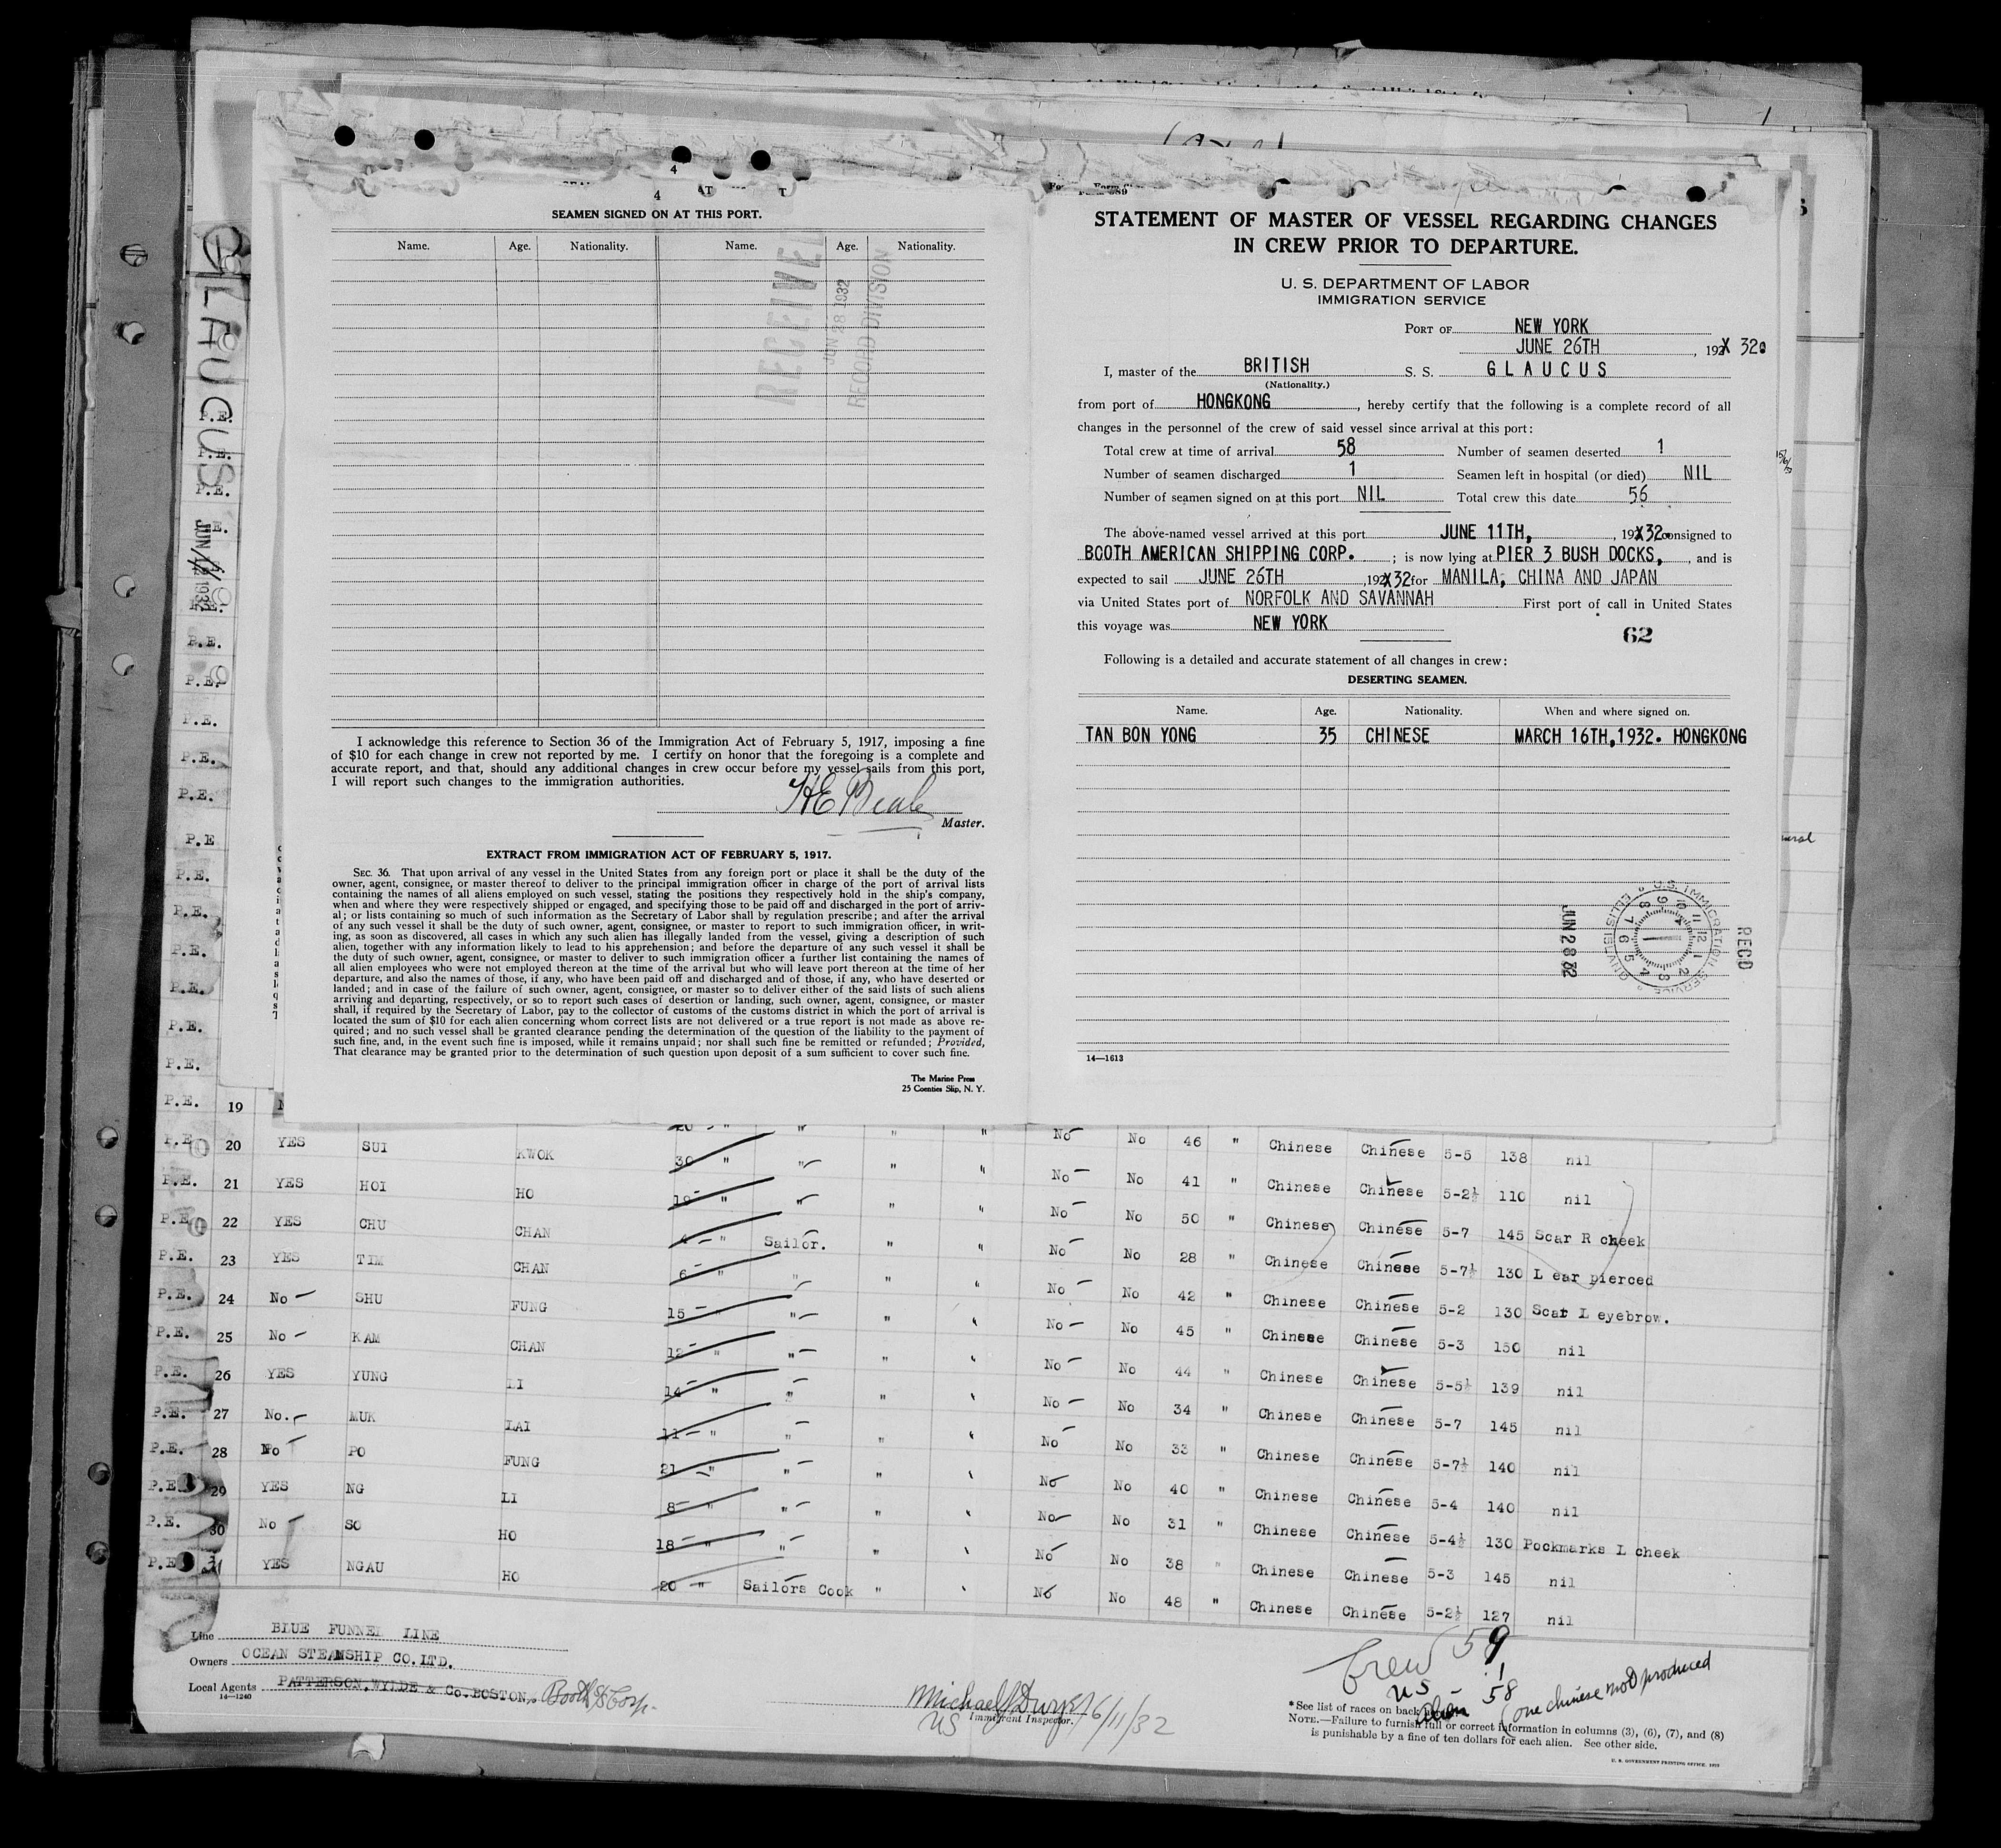 4
SEAMEN SIGNED ON AT THIS PORT.
Name. Age. Nationality. Name. Age. Nationality.
RECEIVED
JUN 28 1932
RECORD DIVISION
I acknowledge this reference to Section 36 of the Immigration Act of February 5, 1917, imposing a fine
of $10 for each change in crew not reported by me. I certify on honor that the foregoing is a complete and
accurate report, and that, should any additional changes in crew occur before my vessel sails from this port,
I will report such changes to the immigration authorities.
H E Beale
Master.
EXTRACT FROM IMMIGRATION ACT OF FEBRUARY 5, 1917.
SEC. 36. That upon arrival of any vessel in the United States from any foreign port or place it shall be the duty of the
owner, agent, consignee, or master thereof to deliver to the principal immigration officer in charge of the port of arrival lists
containing the names of all aliens employed on such vessel, stating the positions they respectively hold in the ship's company,
when and where they were respectively shipped or engaged, and specifying those to be paid off and discharged in the port of arriv-
al; or lists containing so much of such information as the Secretary of Labor shall by regulation prescribe; and after the arrival
of any such vessel it shall be the duty of such owner, agent, consignee, or master to report to such immigration officer, in writ-
ing, as soon as discovered, all cases in which any such alien has illegally landed from the vessel, giving a description of such
alien, together with any information likely to lead to his apprehension; and before the departure of any such vessel it shall be
the duty of such owner, agent, consignee, or master to deliver to such immigration officer a further list containing the names of
all alien employees who were not employed thereon at the time of the arrival but who will leave port thereon at the time of her
departure, and also the names of those, if any, who have been paid off and discharged and of those, if any, who have deserted or
landed; and in case of the failure of such owner, agent, consignee, or master so to deliver either of the said lists of such aliens
arriving and departing, respectively, or so to report such cases of desertion or landing, such owner, agent, consignee, or master
shall, if required by the Secretary of Labor, pay to the collector of customs of the customs district in which the port of arrival is
located the sum of $10 for each alien concerning whom correct lists are not delivered or a true report is not made as above re-
quired; and no such vessel shall be granted clearance pending the determination of the question of the liability to the payment of
such fine, and, in the event such fine is imposed, while it remains unpaid; nor shall such fine be remitted or refunded; Provided,
That clearance may be granted prior to the determination of such question upon deposit of a sum sufficient to cover such fine.
The Marine Press
25 Coenties Slip, N. Y.
STATEMENT OF MASTER OF VESSEL REGARDING CHANGES
IN CREW PRIOR TO DEPARTURE.
U. S. DEPARTMENT OF LABOR
IMMIGRATION SERVICE
PORT OF NEW YORK
JUNE 26TH, 192X 32.
I, master of the BRITISH S. S. GLAUCUS
(Nationality.)
from port of HONGKONG, hereby certify that the following is a complete record of all
changes in the personnel of the crew of said vessel since arrival at this port:
Total crew at time of arrival 58 Number of seamen deserted 1
Number of seamen discharged 1 Seamen left in hospital (or died) NIL
Number of seamen signed on at this port NIL Total crew this date 56
The above-named vessel arrived at this port JUNE 11TH, 192X32. consigned to
BOOTH AMERICAN SHIPPING CORP. ; is now lying at PIER 3 BUSH DOCKS, and is
expected to sail JUNE 26TH, 192X32 for MANILA, CHINA AND JAPAN
via United States port of NORFOLK AND SAVANNAH First port of call in United States
this voyage was NEW YORK
62
Following is a detailed and accurate statement of all changes in crew:
DESERTING SEAMEN.
Name. Age. Nationality. When and where signed on.
TAN BON YONG 35 CHINESE MARCH 16TH,1932. HONGKONG
U.S. IMMIGRATION SERVICE ELLIS ISLAND
RECD
JUN 28 32
14—1613
GLAUCUS
JUN 11 1932
P.E. 19
P.E. 20 YES SUI KWOK 30 " " " " No No 46 " Chinese Chinese 5-5 138 nil
P.E. 21 YES HOI HO 19 " " " " No No 41 " Chinese Chinese 5-2½ 110 nil
P.E. 22 YES CHU CHAN 4 " Sailor. " " No No 50 " Chinese Chinese 5-7 145 Scar R cheek
P.E. 23 YES TIM CHAN 6 " " " " No No 28 " Chinese Chinese 5-7½ 130 L ear pierced
P.E. 24 No SHU FUNG 15 " " " " No No 42 " Chinese Chinese 5-2 130 Scar L eyebrow.
P.E. 25 No KAM CHAN 12 " " " " No No 45 " Chinese Chinese 5-3 150 nil
P.E. 26 YES YUNG LI 14 " " " " No No 44 " Chinese Chinese 5-5½ 139 nil
P.E. 27 No. MUK LAI 11 " " " " No No 34 " Chinese Chinese 5-7 145 nil
P.E. 28 No PO FUNG 21 " " " " No No 33 " Chinese Chinese 5-7½ 140 nil
P.E. 29 YES NG LI 8 " " " " No No 40 " Chinese Chinese 5-4 140 nil
P.E. 30 No SO HO 18 " " " " No No 31 " Chinese Chinese 5-4½ 130 Pockmarks L cheek
P.E. 31 YES NGAU HO 20 " Sailors Cook " " No No 38 " Chinese Chinese 5-3 145 nil
No 48 " Chinese Chinese 5-2½ 127 nil
Line BLUE FUNNEL LINE
Owners OCEAN STEAMSHIP CO.LTD.
Local Agents PATTERSON,WYLDE & Co.BOSTON, Booth SS Corp.
14—1240
Michael J Dwyer 6/11/32
US Immigrant Inspector.
Crew 59
US 1
Alien 58 (one chinese not produced
*See list of races on back
NOTE.—Failure to furnish full or correct information in columns (3), (6), (7), and (8)
is punishable by a fine of ten dollars for each alien. See other side.
U. S. GOVERNMENT PRINTING OFFICE